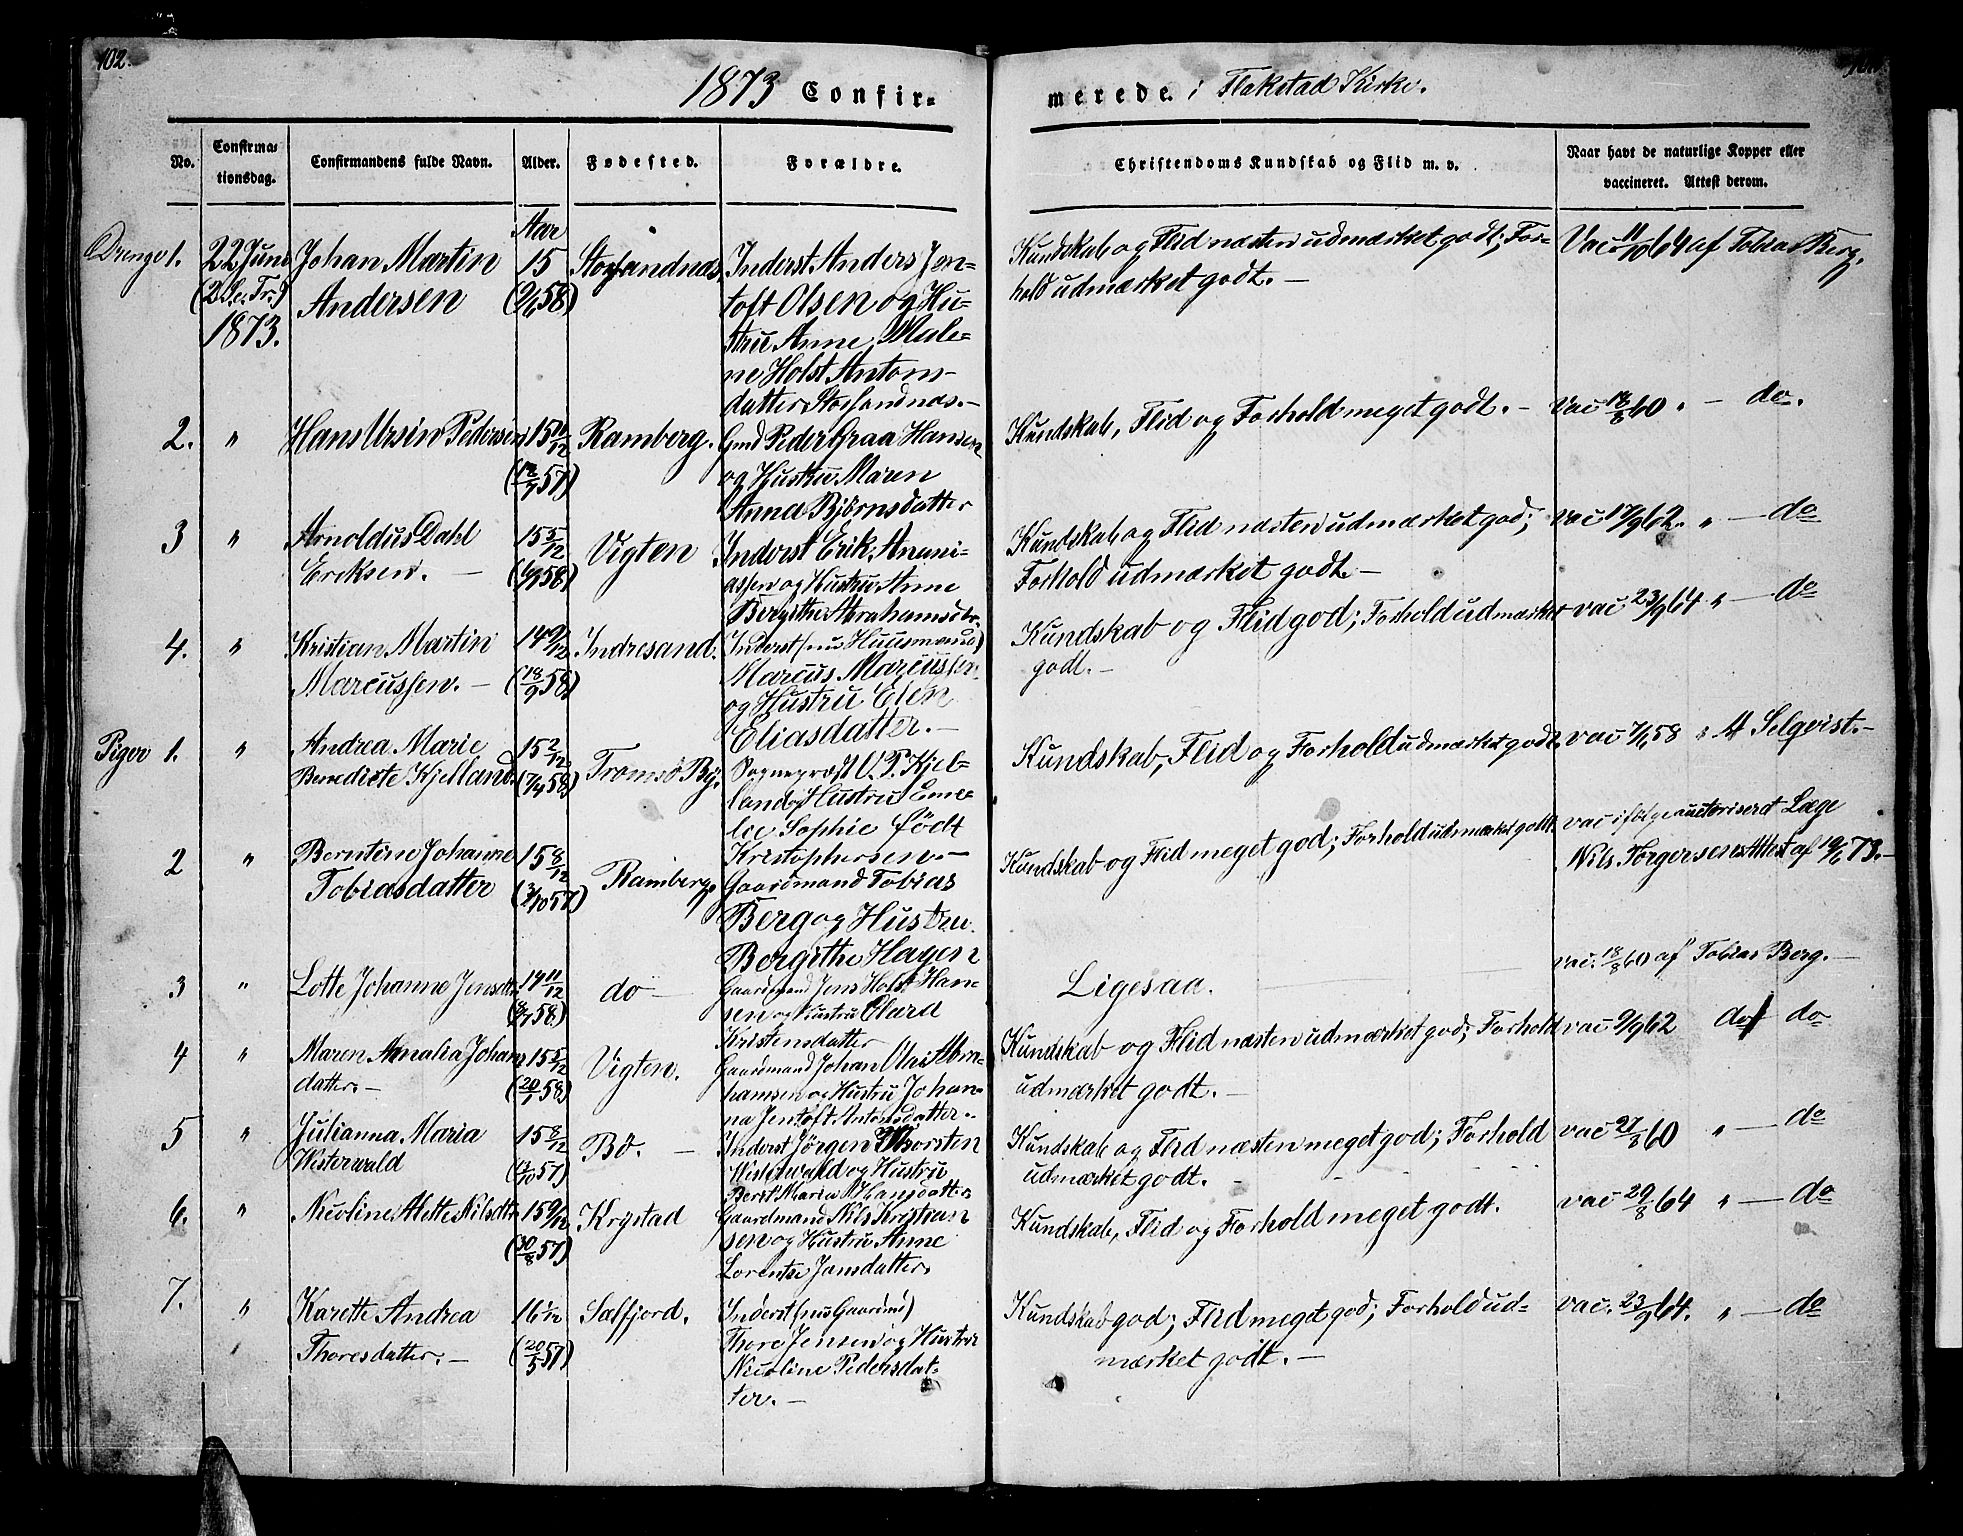 102.
1873 Confir-
merede. i Flakstad Kirke.
No.
Confirma-
tionsdag.
Confirmandens fulde Navn.
Alder.
Fødested.
Forældre.
Christendoms Kundskab og Flid m. v.
Naar havt de naturlige Kopper eller
vaccineret. Attest derom.
Drenge 1.
22 Juni
(2 S. e. Tr.)
1873.
Johan Martin
Andersen
Aar
15
Storsandnæs,
Inderst Anders Jen-
toft Olsen og Hu-
stru Anne Male-
ne Holst Antons-
datter Storsandnæs.-
Kundskab og Flid næsten udmærket godt; For-
hold udmærket godt. -
Vac 11/10 64 af Tobias Berg.
2. " Hans Ursin Pedersen
15 11/12
(12/7 57)
Ramberg.
Gmd Peder Graa Hansen
og Hustru Maren
Anna Björnsdatter
Kundskab, Flid og Forhold meget godt. -
Vac 18/8 60 " - do.
3 " Arnoldus Dahl
Eriksen. -
15 5/12
Vigten
Inderst Erik Anani-
assen og Hustru Anne
Bergithe Abrahamsdtr.
Kundskab og Flid næsten udmærket god;
Forhold udmærket godt -
vac 17/9 62. " - do
4. " Kristian Martin
Marcussen. -
14 9/12
(18/9 58)
Indresand.
Inderst (nu Huusmand)
Marcus Marcussen
og Hustru Elen
Eliasdatter. -
Kundskab og Flid god; Forhold udmærket
godt. -
vac 23/9 64 " - do
Piger 1. " Andrea Marie
Benedicte Kjelland
15 2/12
(7/4 58)
Tromsö By.
Sognepræst V. P. Kjel-
land og Hustru Eme-
lie Sophie födt
Kristophersen. -
Kundskab, Flid og Forhold udmærket godt.
vac 7/1 58 " M Selqvist. -
2 " Berntine Johanne
Tobiasdatter
15 8/12
(3/10 57)
Ramberg.
Gaardmand Tobias
Berg og Hustru
Bergithe Hagen
Kundskab og Flid meget god; Forhold udmærket godt.
vac ifölge auctoriseret Læge
Nils Torgersens Attest af 19/6 73. -
3 " Lotte Johanne Jensdtr.
14 11/12
(8/7 58)
do -
Gaardmand Jens Holst Han-
sen og Hustru
Kristensdatter
Ligesaa.
vac. 18/8 60 af Tobias Berg. -
4 " Maren Amalia Johans
datter. -
15 5/12
(20/1 58)
Vigten.
Gaardmand Johan Olai Abra-
hamsen og Hustru Johan-
na Jentoft Antonsdatter.
Kundskab og Flid næsten udmærket god; Forhold
udmærket godt. -
vac 9/9 62 do do
5 " Julianna Maria
Wisterwald
15 8/12
Bö. -
Inderst Jörgen Thorsten
Wisterwald og Hustru
Berit Maria Hansdatter
Kundskab og Flid næsten meget god; Forhold
udmærket godt. -
vac 27/8 60 " - do
6. " Nicoline Alette Nilsdtr.
15 9/12
(30/8 57)
Krystad
Gaardmand Nils Kristian-
sen og Hustru Anne
Lorentse Jansdatter
Kundskab, Flid og Forhold meget godt.
vac 29/8 64 " - do
7. " Karette Andrea
Thoresdatter. -
16 1/12
(20/5 57)
Selfjord.
Inderst (nu Gaardmd)
Thore Jensen og Hustru
Nicoline Pedersdat-
ter. -
Kundskab god; Flid meget god; Forhold ud-
mærket godt. -
vac. 23/9 64. " - do